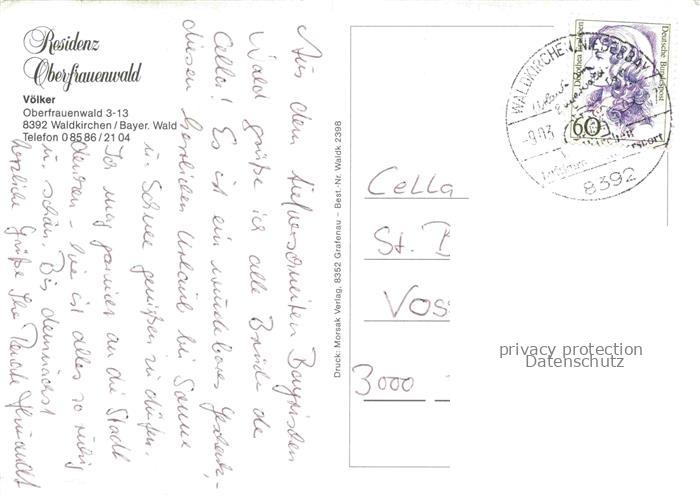 Residenz
Oberfrauenwald
Völker
Oberfrauenwald 3-13
8392 Waldkirchen / Bayer. Wald
Telefon 0 85 86 / 21 04
Aus dem tiefverschneiten Bayrischen
Wald grüße ich alle Brüder de
Cella! Es ist ein wunderbares Geschenk,
diesen herrlichen Urlaub bei Sonne
u. Schnee genießen zu dürfen.
Ich mag gar nicht an die Stadt
denken - hier ist alles so ruhig
u. schön. Bis demnächst
herzliche Grüße Ihre
Druck: Morsak Verlag, 8352 Grafenau – Best.-Nr. Waldk 2398
WALDKIRCHEN, NIEDERBAY
8392
Deutsche Bundespost
60
Cella
St. B
Vos
3000
privacy protection
Datenschutz